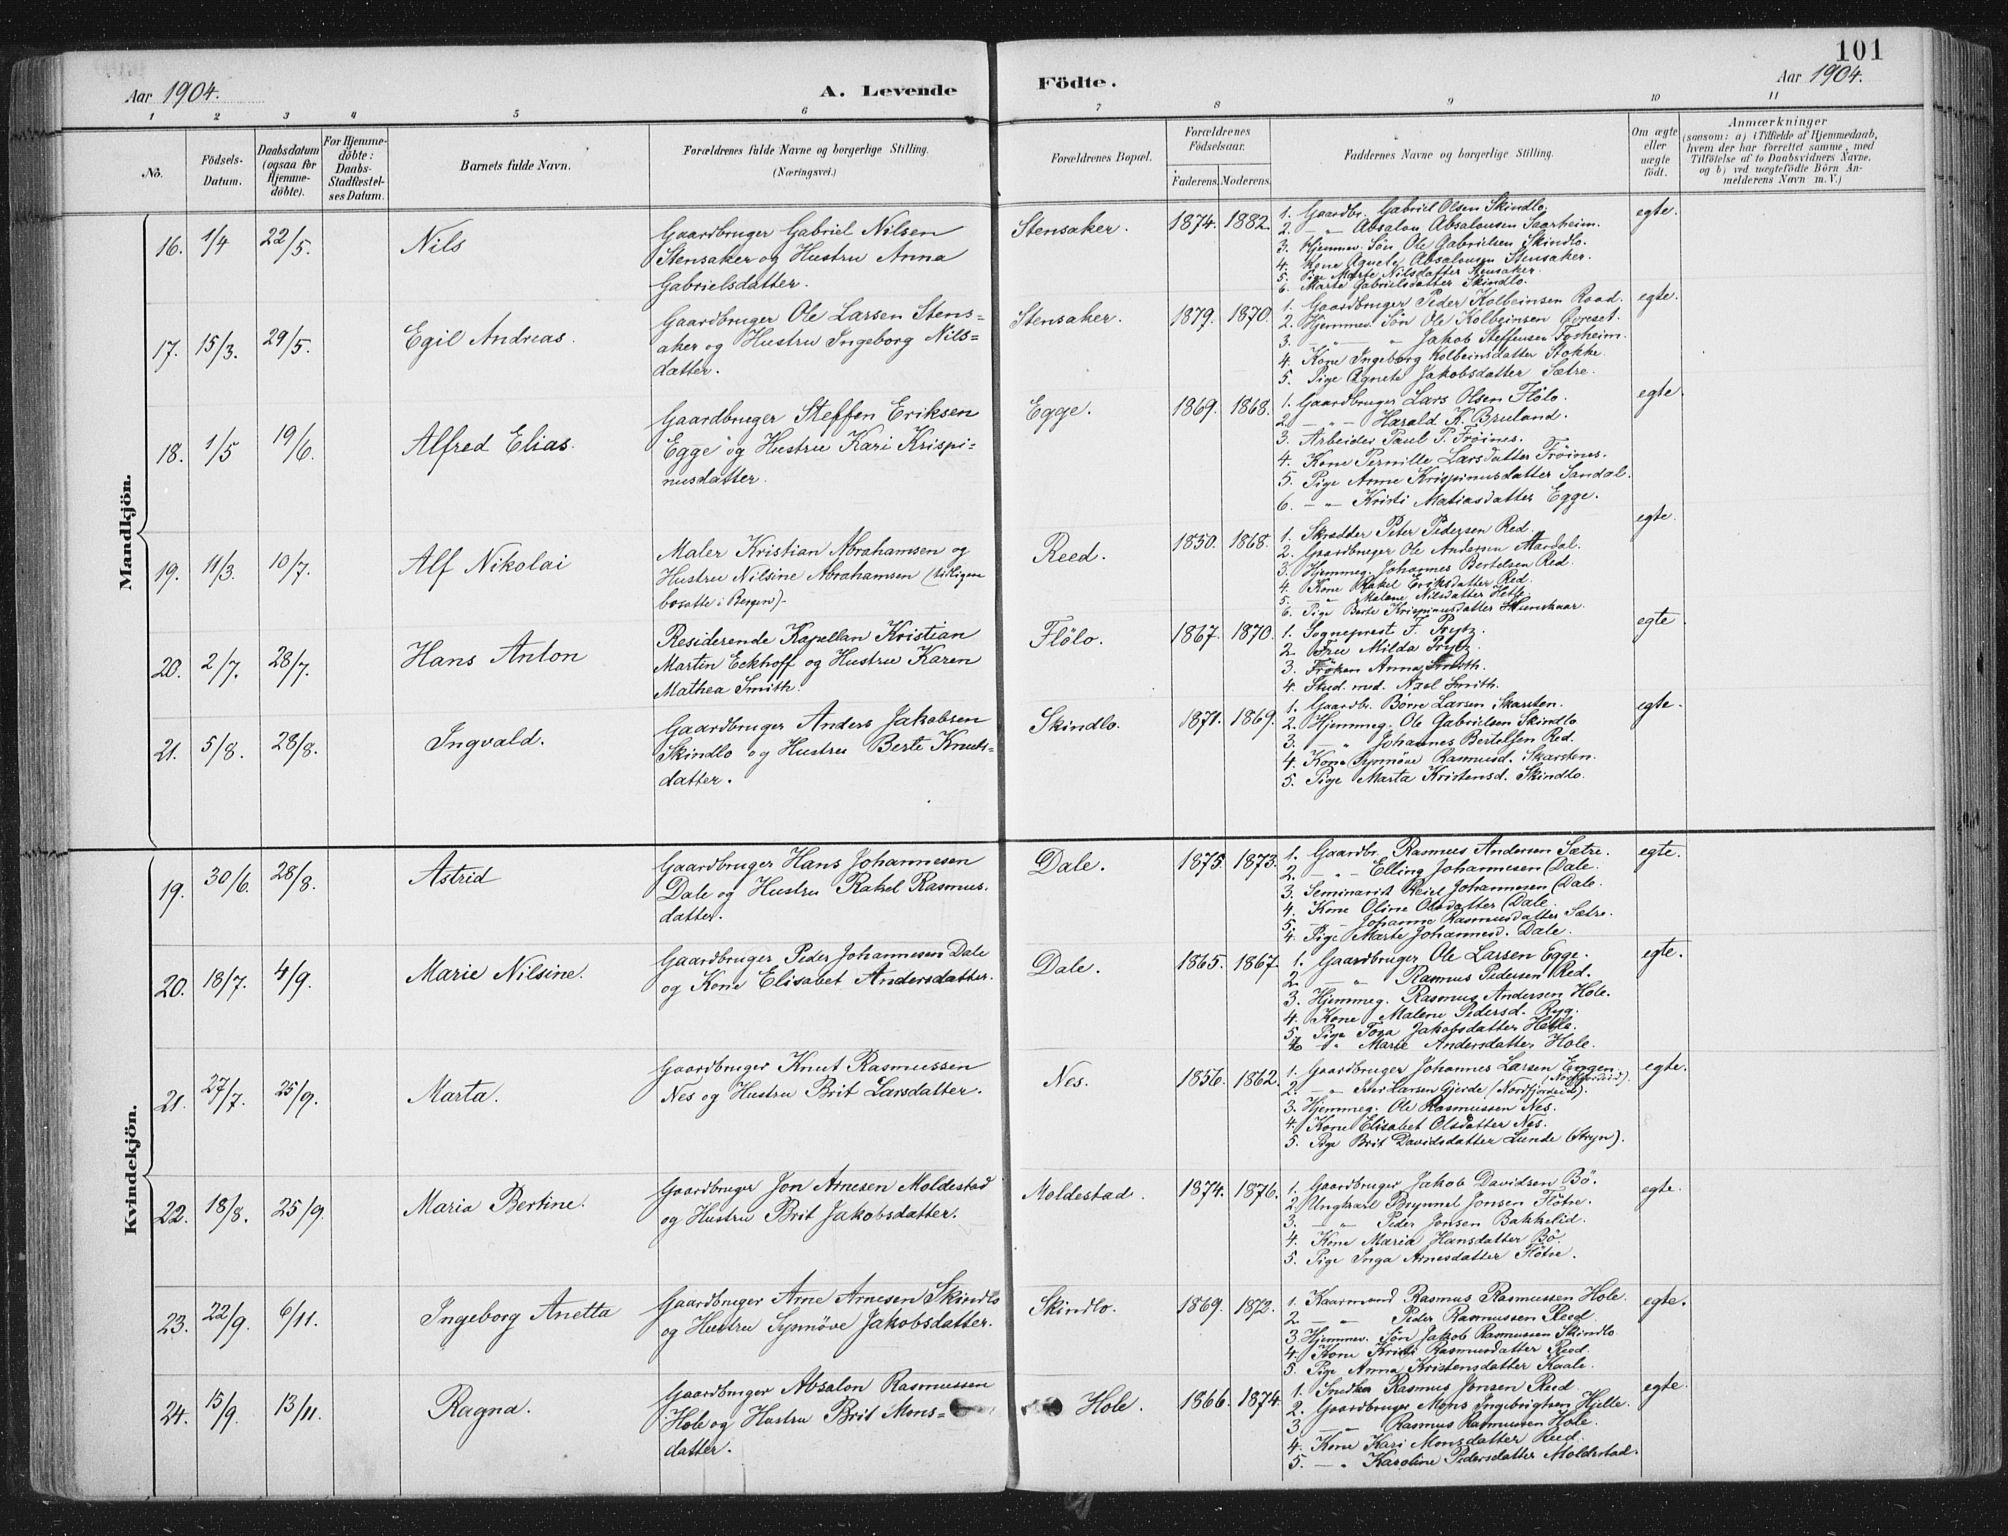 101
Aar 1904.
A. Levende
Födte.
Aar 1904.
1 2 3 4 5 6 7 8 9 10 11
No.
Födsels-
Datum.
Daabsdatum
(ogsaa for
Hjemme-
döbte).
For Hjemme-
döbte:
Daabs-
Stadfæstel-
ses Datum.
Barnets fulde Navn.
Forældrenes fulde Navne og borgerlige Stilling.
(Næringsvei.)
Forældrenes Bopæl.
Forældrenes
Födselsaar.
Faderens. Moderens.
Faddernes Navne og borgerlige Stilling.
Om ægte
eller
uægte
födt.
Anmærkninger
(saasom: a) i Tilfælde af Hjemmedaab,
hvem der har forrettet samme, med
Tilföielse af to Daabsvidners Navne.
og b) ved uægtefödte Börn An-
melderens Navn m. V.)
Mandkjön.
16. 1/4 22/5. Nils
Gaardbruger Gabriel Nilsen
Stensaker og Hustru Anna
Gabrielsdatter.
Stensaker. 1874. 1882.
1. Gaardbr. Gabriel Olsen Skindlo.
2. " Absalon Absalonsen Saarheim.
3. Hjemmev. Sön Ole Gabrielsen Skindlo.
4. Kone Agnete Absalonsen Stensaker.
5. Pige Marte Nilsdatter Stensaker.
6. Marte Gabrielsdatter Skindlo.
egte.
17. 15/3. 29/5. Egil Andreas.
Gaardbruger Ole Larsen Stens=
aker og Hustru Ingeborg Nils=
datter.
Stensaker. 1879. 1870.
1. Gaardbruger Peder Kolbeinsen Raad.
2. Hjemmev. Sön Ole Kolbeinsen
3. — " — " Jakob Steffensen Fosheim.
4. Kone Ingeborg Kolbeinsdatter Stokke.
5. Pige Agnete Jakobsdatter Sætre.
egte.
18. 1/5 19/6. Alfred Elias.
Gaardbruger Steffen Eriksen
Egge og Hustru Kari Krispi=
nusdatter.
Egge. 1869. 1868.
1. Gaardbruger Lars Olsen Flölo.
2. — " — Harald K. Bruland.
3. Arbeider Paul P. Fröines.
4. Kone Pernille Larsdatter Fröines.
5. Pige Anne Krispinusdatter Sandal.
6. — " — Kristi Matiasdatter Egge.
egte.
19. 11/3. 10/7. Alf Nikolai
Maler Kristian Abrahamsen og
Hustru Nilsine Abrahamsen (tidligere
bosatte i Bergen).
Reed. 1850. 1868.
1. Skrædder Peter Pedersen Red.
2. Gaardbruger Ole Andersen Aardal.
3. Hjemmeg. Johannes Bertelsen Red.
4. Kone Rakel Eriksdatter Red.
5. — " — Malene Nilsdatter Hetle.
6. Pige Berte Krispinusdatter
egte.
20. 2/7. 28/7. Hans Anton
Residerende Kapellan Kristian
Martin Eckhoff og Hustru Karen
Mathea Smith.
Flölo. 1867. 1870.
1. Sogneprest F. Prytz.
2. Fru Milda Prytz
3. Fröken Anna Smith.
4. Stud. med. Axel Smith.
egte
21. 5/8. 28/8. Ingvald.
Gaardbruger Anders Jakobsen
Skindlo og Hustru Berte Knuts=
datter.
Skindlo. 1871. 1869.
1. Gaardbr. Börre Larsen Skarsten.
2. Hjemmeg. Ole Gabrielsen Skindlo
3. — " Johannes Bertelsen Red.
4. Kone Synnöve Rasmusd. Skarsten.
5. Pige Marta Kristensd. Skindlo.
egte.
Kvindekjön.
19. 30/6. 28/8. Astrid
Gaardbruger Hans Johannesen
Dale og Hustru Rakel Rasmus.
datter.
Dale. 1875. 1873.
1. Gaardbr. Rasmus Andersen Sætre.
2. — " — Elling Johannesen Dale.
3. Seminarist Reiel Johannesen Dale.
4. Kone Oline Olsdatter Dale.
5. — " — Johanne Rasmusdatter Sætre.
4. Pige Marte Johannesd. Dale.
egte.
20. 18/7. 4/9. Marie Nilsine.
Gaardbruger Peder Johannesen Dale
og Kone Elisabet Andersdatter.
Dale. 1865. 1867.
1. Gaardbruger Ole Larsen Egge.
2. — " Rasmus Pedersen Red.
3. Hjemmeg. Rasmus Andersen Hole.
4. Kone Malene Pedersd. Ryg.
5. Pige Tora Jakobsdatter Hetle.
6 — " Marie Andersdatter Hole.
egte.
21. 27/7. 25/9. Marta.
Gaardbruger Knut Rasmussen
Nes og Hustru Brit Larsdatter.
Nes. 1856. 1862.
1. Gaardbruger Johannes Larsen Eggen
2. — " Iver Larsen Gjerde (Nordfjordeid).
3. Hjemmeg. Ole Rasmussen Nes.
4. Kone Elisabet Olsdatter Nes.
5. Pige Brit Davidsdatter Lunde (Stryn).
egte.
22. 18/8. 25/9. Maria Bertine.
Gaardbruger Jon Arnesen Moldestad
og Hustru Brit Jakobsdatter.
Moldestad. 1874. 1876.
1. Gaardbruger Jakob Davidsen Bö.
2. Ungkarl Brynnel Jonsen Flötre.
3. — " — Peder Jonsen Bakkelid.
4. Kone Maria Hansdatter Bö.
5. Pige Inga Arnesdatter Flötre.
egte.
23. 22/9. 6/11. Ingeborg Anetta
Gaardbruger Arne Arnesen Skindlo
og Hustru Synnöve Jakobsdatter.
Skindlo. 1869. 1872.
1. Kaarmand Rasmus Rasmussen Hole.
2. — " Peder Rasmussen Reed
3. Hjemmev. Sön Jakob Rasmussen Skindlo
4. Kone Kristi Rasmusdatter Reed.
5. Pige Anna Kristensdatter Kaale.
egte.
24. 15/9. 13/11. Ragna.
Gaardbruger Absalon Rasmussen
Hole og Hustru Brit Mons=
datter.
Hole. 1866. 1874.
1. Snedker Rasmus Jonsen Reed.
2. Gaardbruger Mons Ingebrigtsen Hjelle.
3. — " Rasmus Rasmussen Hole.
4. Kone Kari Monsdatter Reed.
5. — " Karoline Pedersdatter Moldestad.
egte.